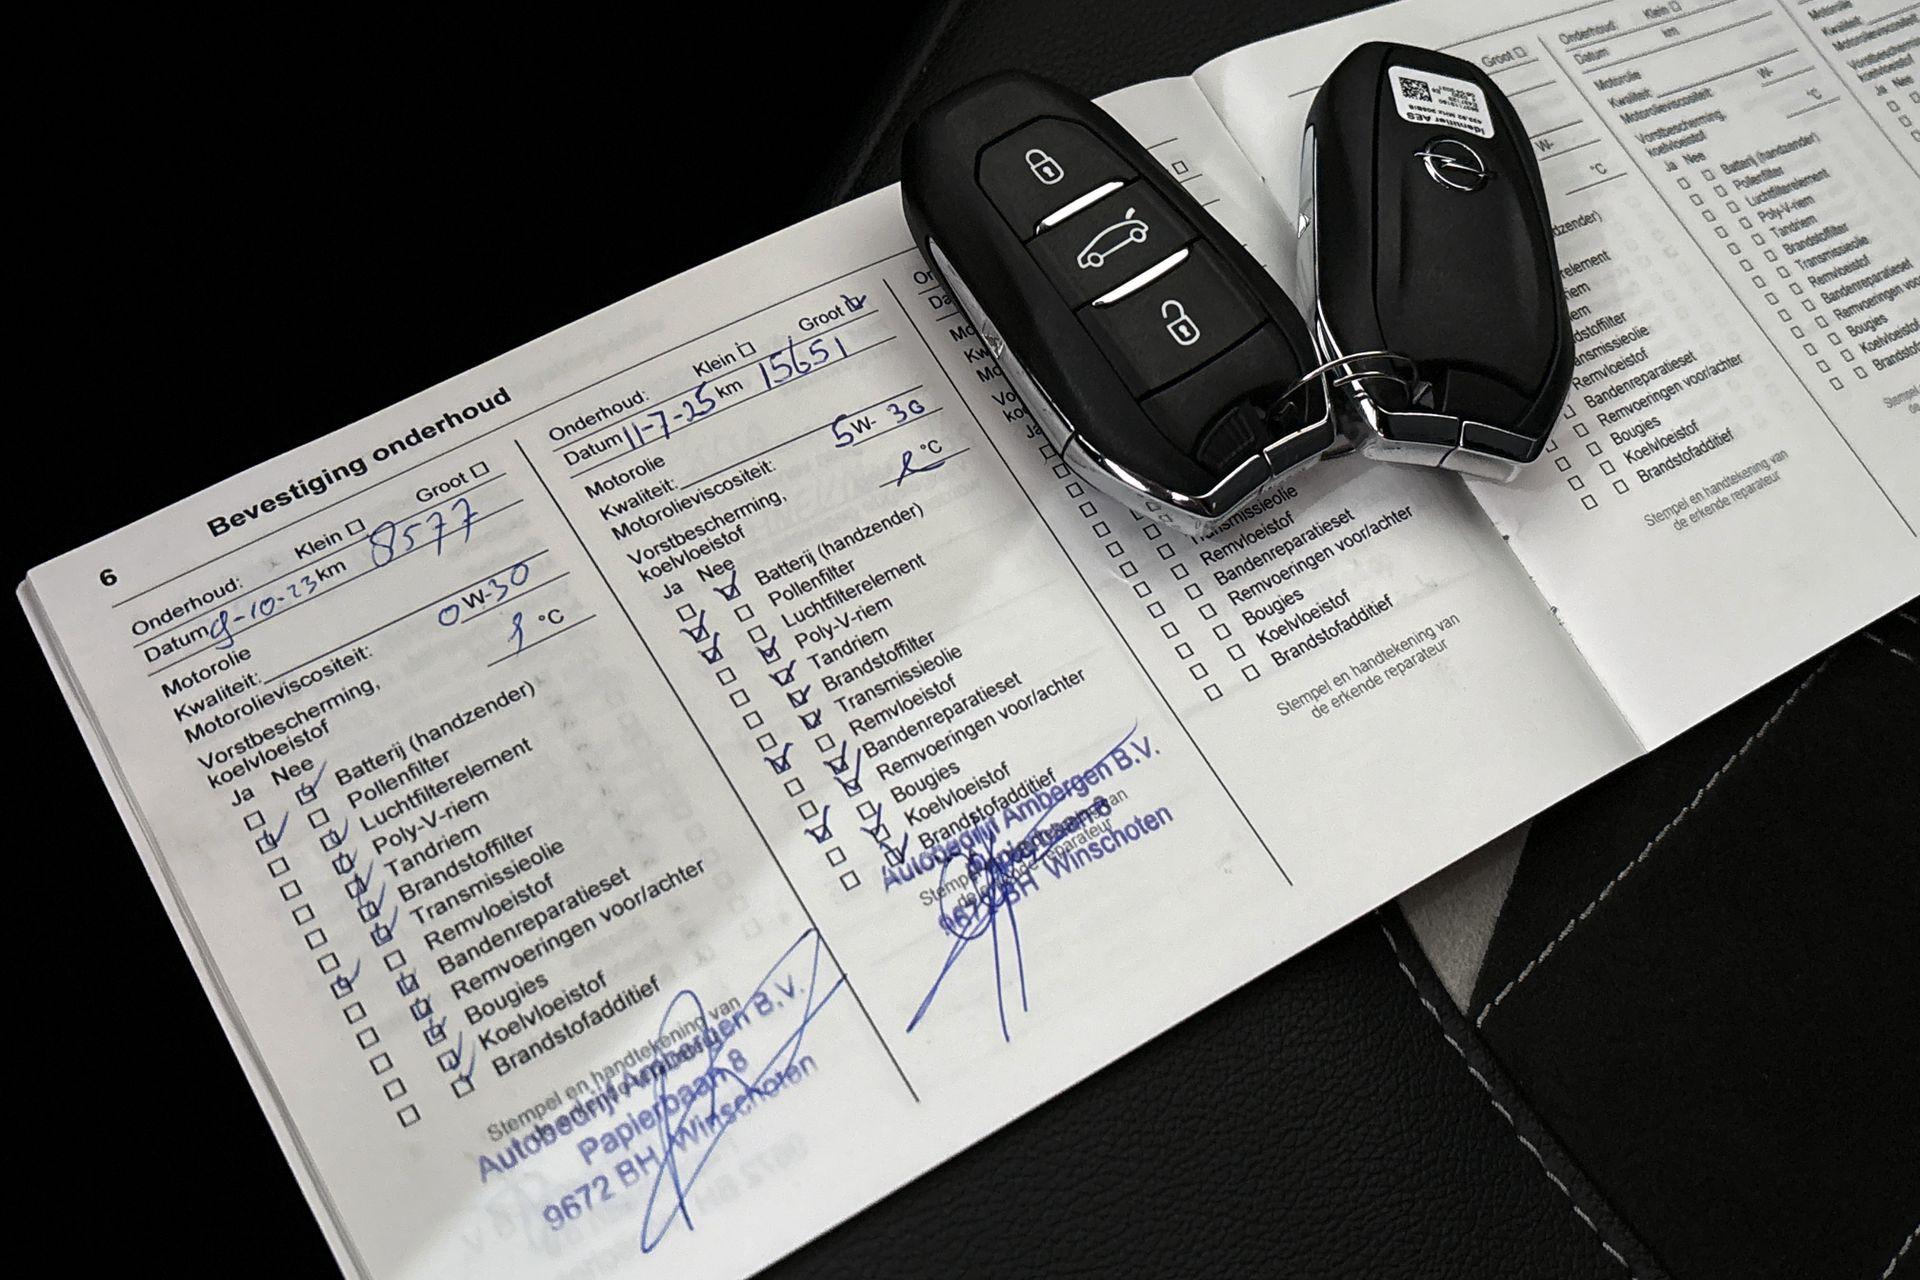 6
Bevestiging onderhoud
Onderhoud: Klein Groot
Datum 9-10-23 km 8577
Motorolie
Kwaliteit:
Motorolieviscositeit: 0W-30
Vorstbescherming,
koelvloeistof °C
Ja Nee
Batterij (handzender)
Pollenfilter
Luchtfilterelement
Poly-V-riem
Tandriem
Brandstoffilter
Transmissieolie
Remvloeistof
Bandenreparatieset
Remvoeringen voor/achter
Bougies
Koelvloeistof
Brandstofadditief
Stempel en handtekening van
Autobedrijf Ambergen B.V.
Papierbaan 8
9672 BH Winschoten
Onderhoud: Klein Groot
Datum 11-7-25 km 15651
Motorolie
Kwaliteit:
Motorolieviscositeit: 5W-30
Vorstbescherming,
koelvloeistof °C
Ja Nee
Batterij (handzender)
Pollenfilter
Luchtfilterelement
Poly-V-riem
Tandriem
Brandstoffilter
Transmissieolie
Remvloeistof
Bandenreparatieset
Remvoeringen voor/achter
Bougies
Koelvloeistof
Brandstofadditief
Autobedrijf Ambergen B.V.
de erkende reparateur
9672 BH Winschoten
Remvloeistof
Bandenreparatieset
Remvoeringen voor/achter
Bougies
Koelvloeistof
Brandstofadditief
Stempel en handtekening van
de erkende reparateur
Groot
W-
°C
Remvloeistof
Bandenreparatieset
Remvoeringen voor/achter
Bougies
Koelvloeistof
Brandstofadditief
Stempel en handtekening van
de erkende reparateur
Onderhoud: Klein
Datum km
Motorolie
Kwaliteit: W-
Motorolieviscositeit:
Vorstbescherming,
koelvloeistof °C
Ja Nee
Batterij (handzender)
Pollenfilter
Luchtfilterelement
Poly-V-riem
Tandriem
Brandstoffilter
Transmissieolie
Remvloeistof
Bandenreparatieset
Bougies